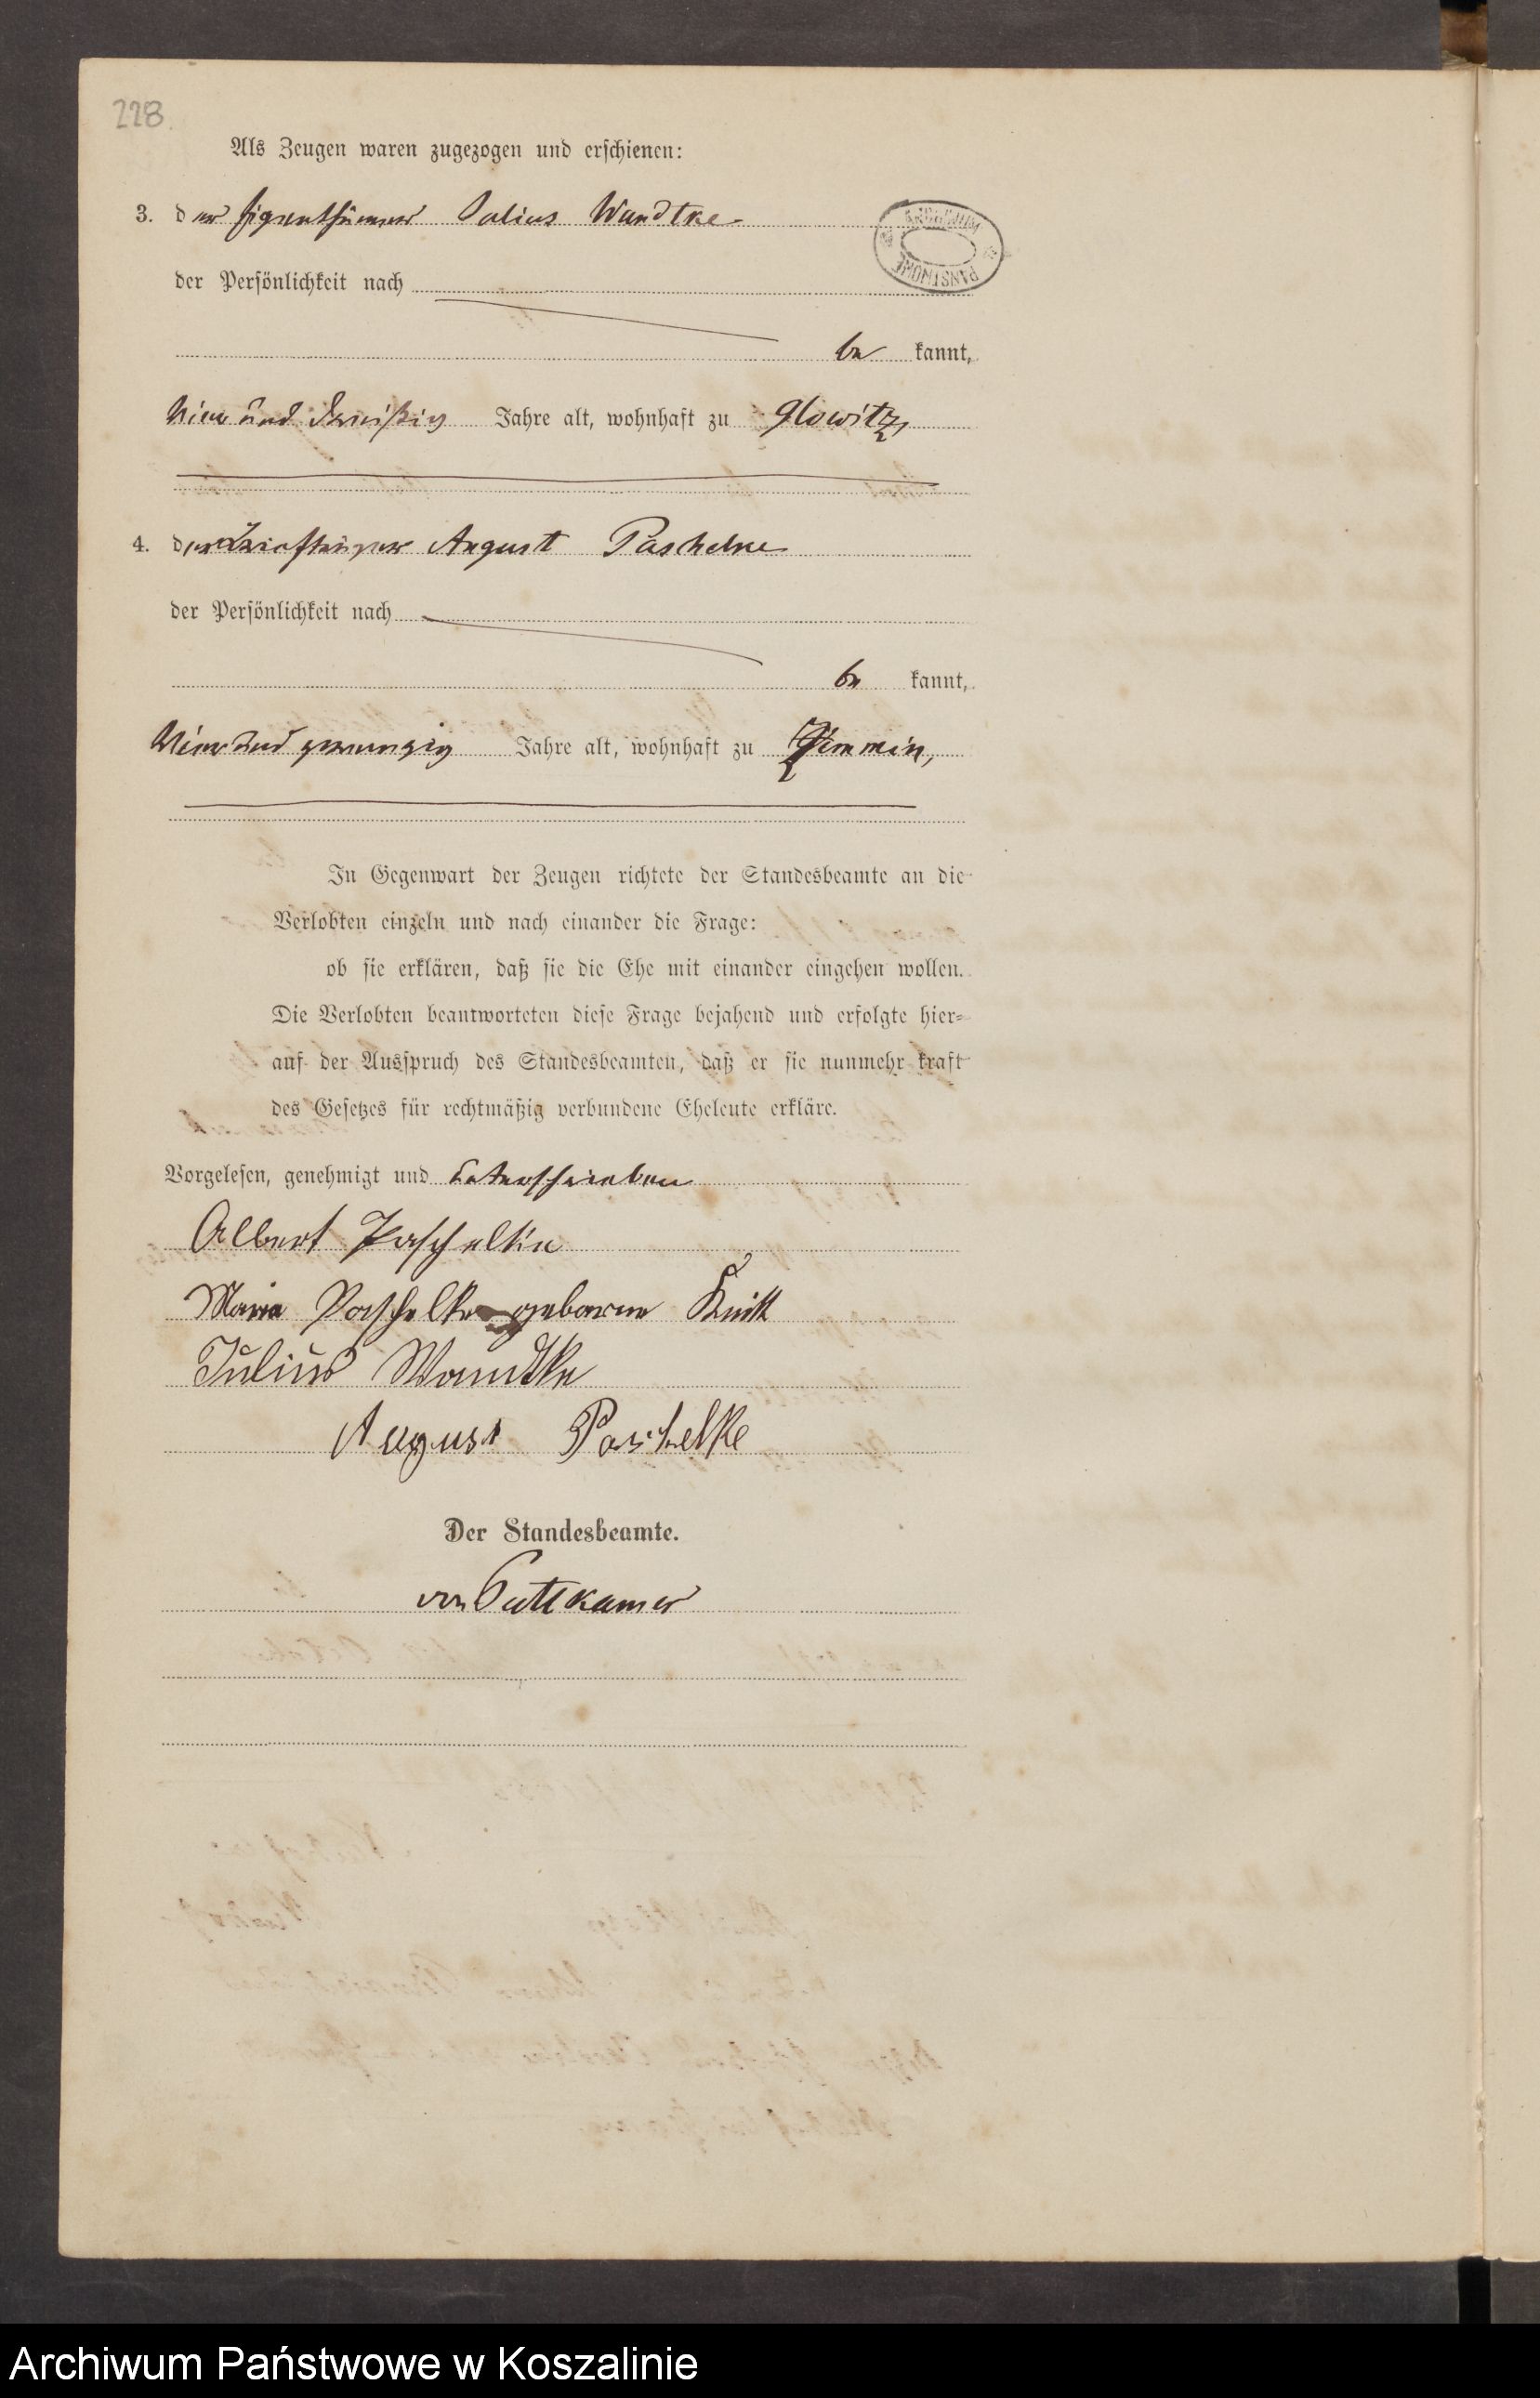 228
Als Zeugen waren zugezogen und erschienen:
3. der Eigenthümer Julius Wandtke
der Persönlichkeit nach
be kannt,
Vier und dreißig Jahre alt, wohnhaft zu Glowitz,
4. der Briefträger August Paschelke
der Persönlichkeit nach
be kannt,
Vier und zwanzig Jahre alt, wohnhaft zu Zemmin,
In Gegenwart der Zeugen richtete der Standesbeamte an die
Verlobten einzeln und nach einander die Frage:
ob sie erklären, daß sie die Ehe mit einander eingehen wollen.
Die Verlobten beantworteten diese Frage bejahend und erfolgte hier-
auf der Ausspruch des Standesbeamten, daß er sie nunmehr kraft
des Gesetzes für rechtmäßig verbundene Eheleute erkläre.
Vorgelesen, genehmigt und unterschrieben
Albert Paschelke
Maria Paschelke geborne Knitt
Julius Wandtke
August Paschelke
Der Standesbeamte.
von Puttkamer
Archiwum Państwowe w Koszalinie